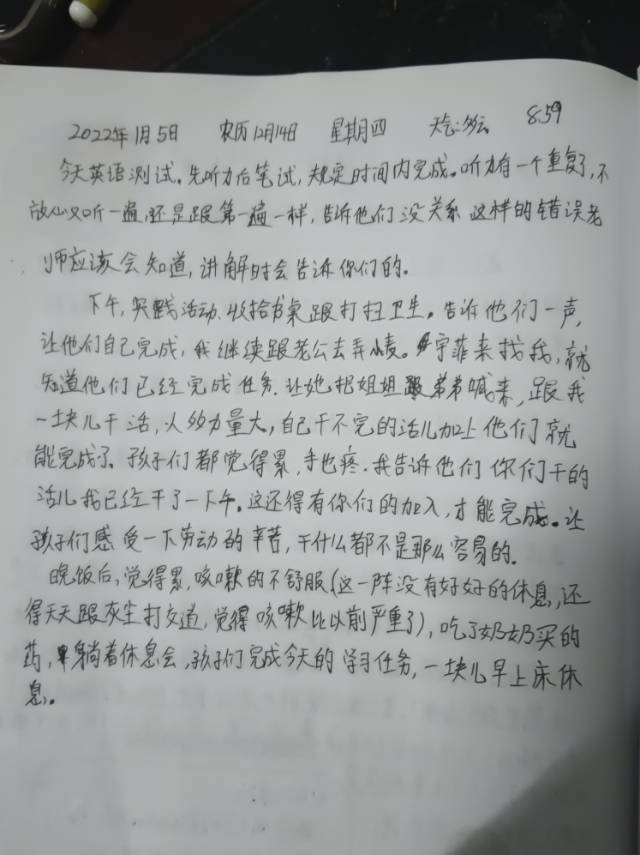 2022年1月5日 农历12月14日 星期四 天气:多云 8:59
今天英语测试。先听力后笔试,规定时间内完成。听力有一个重复了,不
放心又听一遍,还是跟第一遍一样,告诉他们没关系 这样的错误老
师应该会知道,讲解时会告诉你们的。
下午,实践活动.收拾书桌跟打扫卫生。告诉他们一声,
让他们自己完成,我继续跟老公去弄小麦。宇菲来找我,就
知道他们已经完成任务.让她把姐姐跟弟弟喊来,跟我
一块儿干活,人多力量大,自己干不完的活儿加上他们就
能完成了。孩子们都觉得累,手也疼.我告诉他们 你们干的
活儿我已经干了一下午。这还得有你们的加入,才能完成。让
孩子们感受一下劳动的辛苦,干什么都不是那么容易的。
晚饭后,觉得累,咳嗽的不舒服(这一阵没有好好的休息,还
得天天跟灰尘打交道,觉得咳嗽比以前严重了),吃了奶奶买的
药,躺着休息会,孩子们完成今天的学习任务,一块儿早上床休
息。